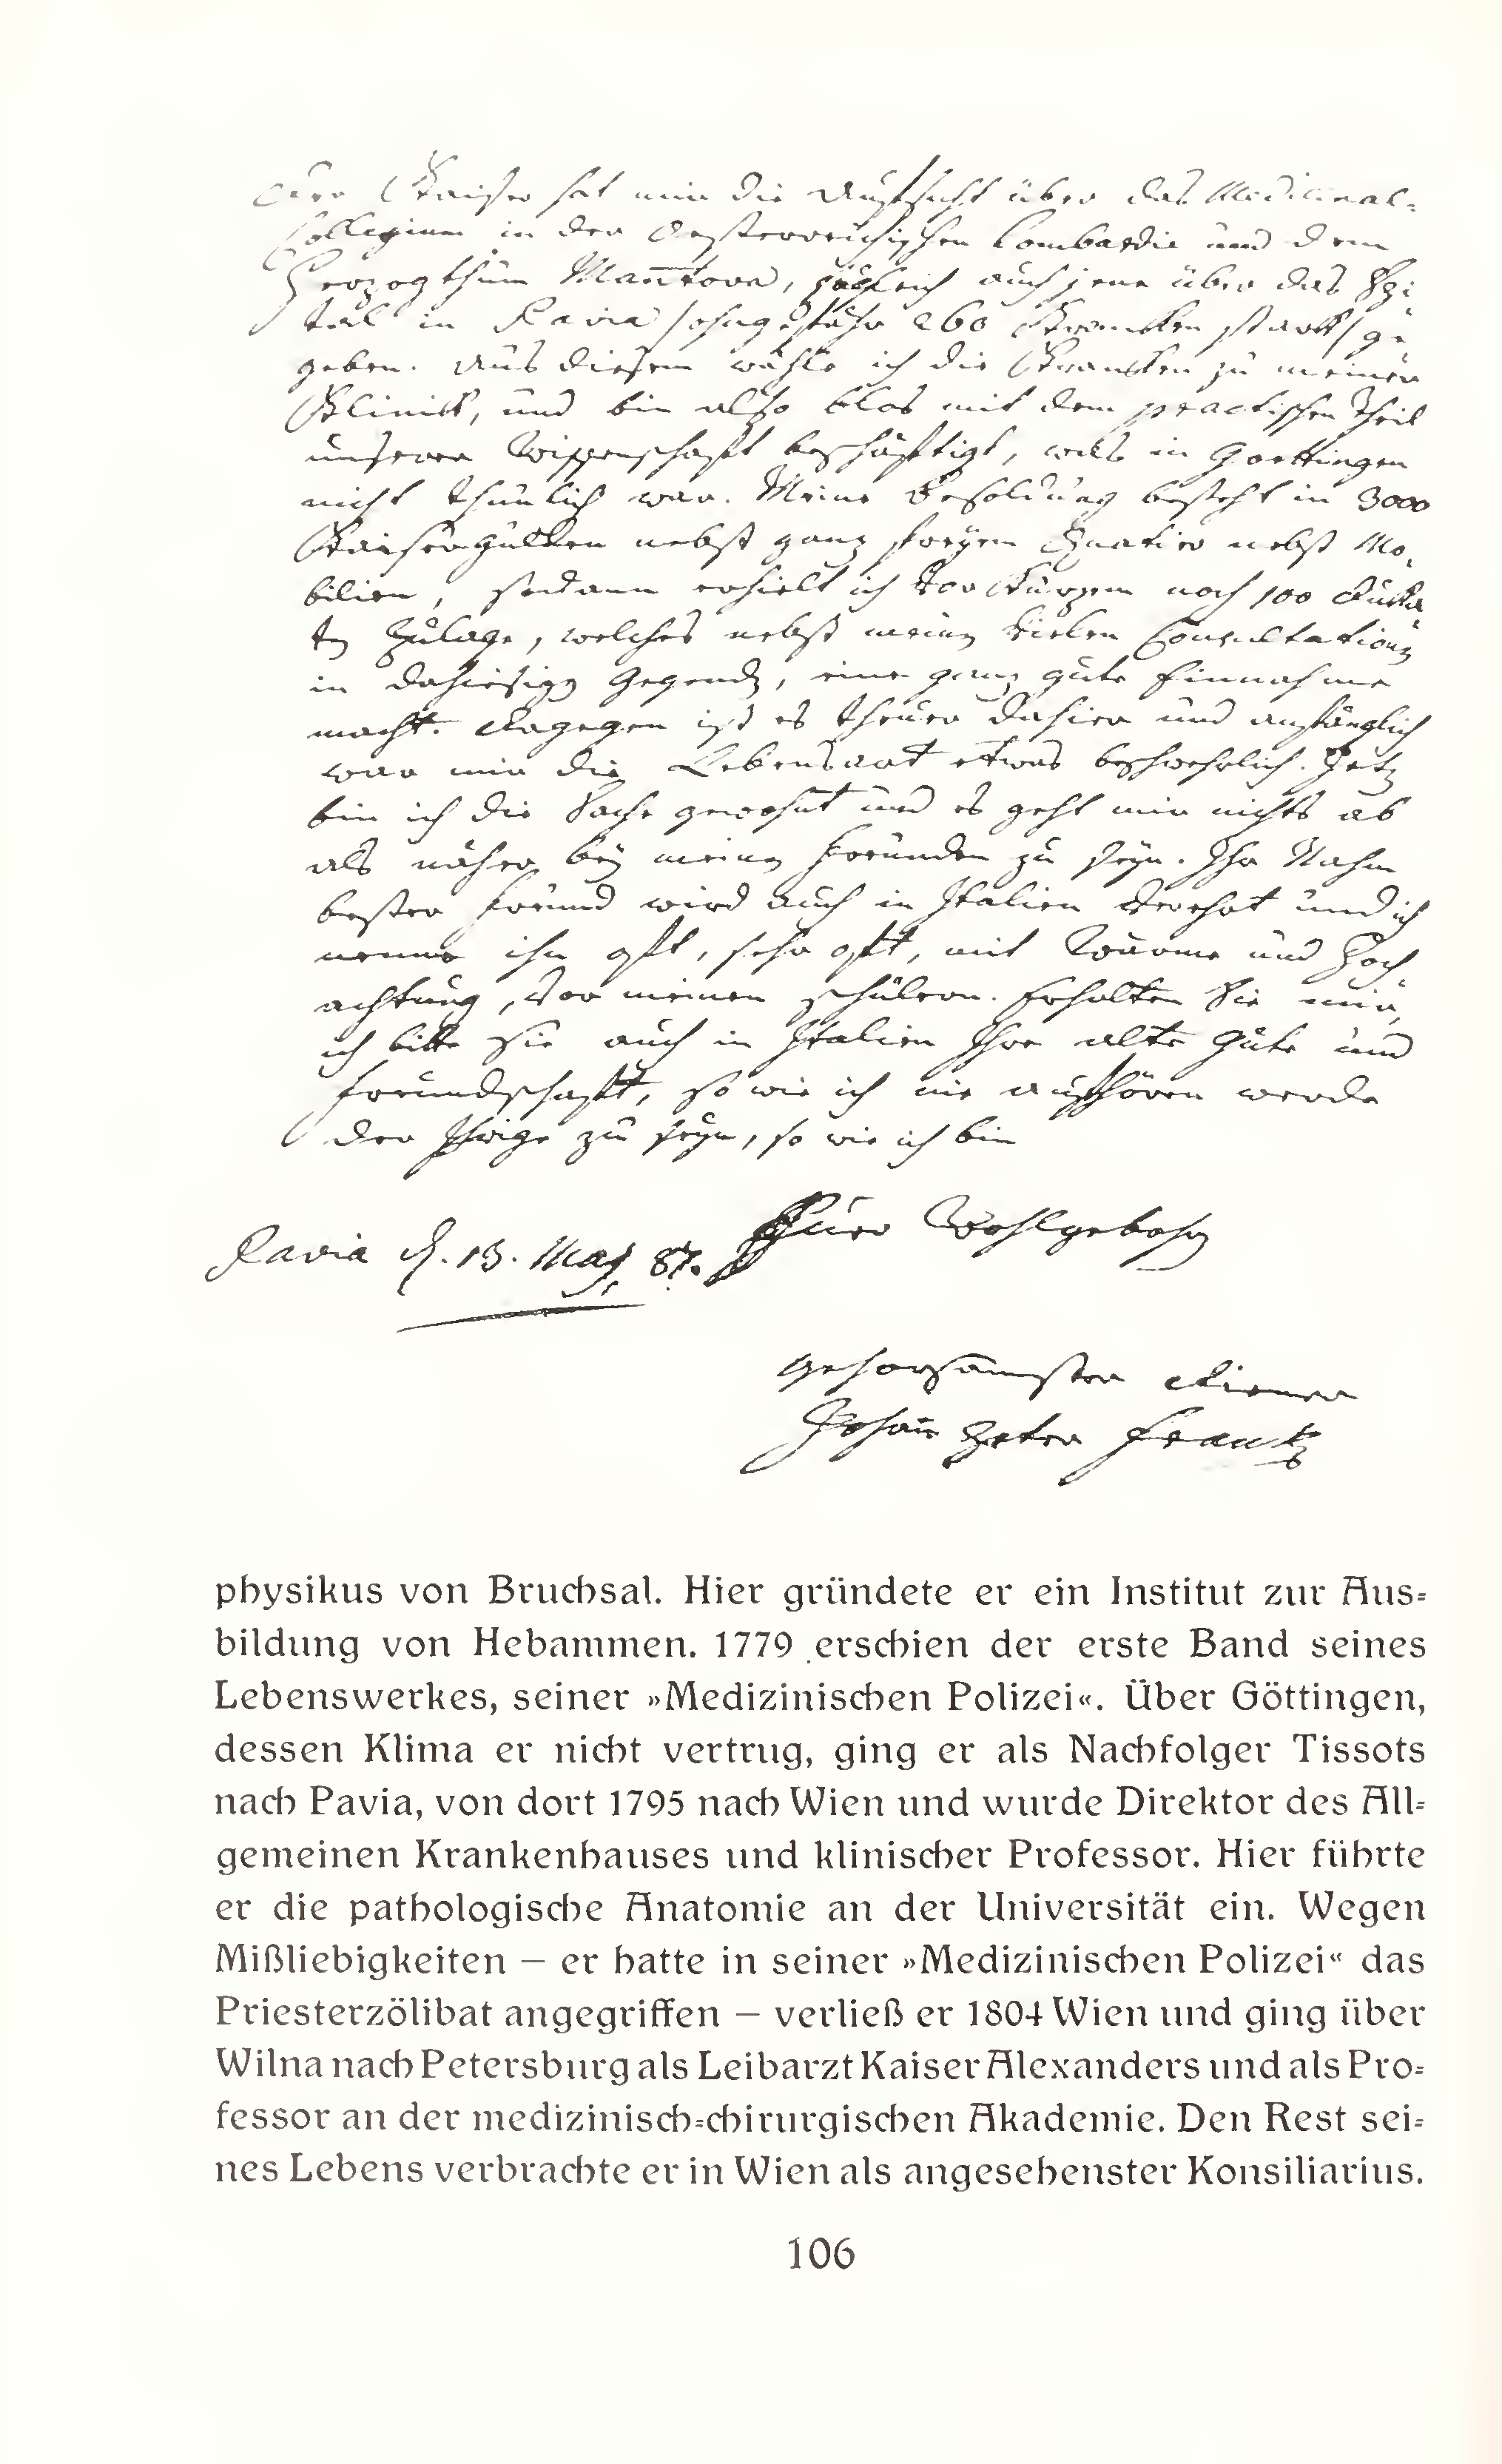 Der Kaiser hat mir die Aufsicht über das Medicinal-
Collegium in der Oesterreichischen Lombardie und dem
Herzogthum Mantova, zugleich auch jene über das Spi-
tal in Pavia /ohngefähr 260 Krancken starck/ ge-
geben. Aus diesem wähle ich die Krancken zu meiner
Klinick, und bin also blos mit dem practischen Theil
unserer Wissenschaft beschäftigt, was in Goettingen
nicht thunlich war. Meine Besoldung besteht in 3000
Kaisergulden nebst ganz freyem Quartier nebst Mo-
bilien, sodann erhielt ich vor Kurzem noch 100 Duka-
ten Zulage, welches nebst meinen vielen Consultationen
in dahiesigen Gegenden, eine ganz gute Einnahme
macht. Dagegen ist es theuer dahier und anfänglich
war mir die Lebensart etwas beschwehrlich. Jetz
bin ich die Sache gewohnt und es geht mir nichts ab
als näher bey meinen Freunden zu seyn. Ihr Nahm
bester Freund wird auch in Italien verehrt und ich
nenne ihn oft, sehr oft, mit Wärme und Hoch-
achtung, vor meinen Schülern. Erhalten Sie mir,
ich bitte Sie auch in Italien Ihre alte Güte und
Freundschaft, so wie ich nie aufhören werde
der Ihrige zu seyn, so wie ich bin
Euer Wohlgebohrn
Pavia d. 13. May 87.
gehorsamster Diener
Johan Peter Franck
physikus von Bruchsal. Hier gründete er ein Institut zur Aus-
bildung von Hebammen. 1779 erschien der erste Band seines
Lebenswerkes, seiner »Medizinischen Polizei«. Über Göttingen,
dessen Klima er nicht vertrug, ging er als Nachfolger Tissots
nach Pavia, von dort 1795 nach Wien und wurde Direktor des All-
gemeinen Krankenhauses und klinischer Professor. Hier führte
er die pathologische Anatomie an der Universität ein. Wegen
Mißliebigkeiten — er hatte in seiner »Medizinischen Polizei« das
Priesterzölibat angegriffen — verließ er 1804 Wien und ging über
Wilna nach Petersburg als Leibarzt Kaiser Alexanders und als Pro-
fessor an der medizinisch-chirurgischen Akademie. Den Rest sei-
nes Lebens verbrachte er in Wien als angesehenster Konsiliarius.
106